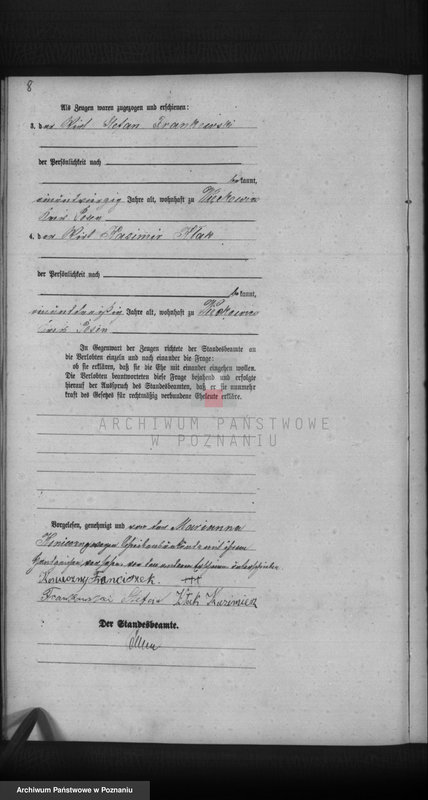 8
Als Zeugen waren zugezogen und erschienen:
3. der Wirt Stefan Frankowski
der Persönlichkeit nach
bekannt,
Jahre alt, wohnhaft zu
Kreis Posen
4. der Wirt Kasimir Klak
der Persönlichkeit nach
bekannt,
Jahre alt, wohnhaft zu
Kreis Posen
In Gegenwart der Zeugen richtete der Standesbeamte an
die Verlobten einzeln und nach einander die Frage:
ob sie erklären, daß sie die Ehe mit einander eingehen wollen.
Die Verlobten beantworteten diese Frage bejahend und erfolgte
hierauf der Ausspruch des Standesbeamten, daß er sie nunmehr
kraft des Gesetzes für rechtmäßig verbundene Eheleute erkläre.
ARCHIWUM PAŃSTWOWE
W POZNANIU
Vorgelesen, genehmigt und von der Marianna
wegen mit ihrem
Handzeichen versehen, von den unterschrieben
Franciszek +++
Stefan Kazimierz
Der Standesbeamte.
Archiwum Państwowe w Poznaniu